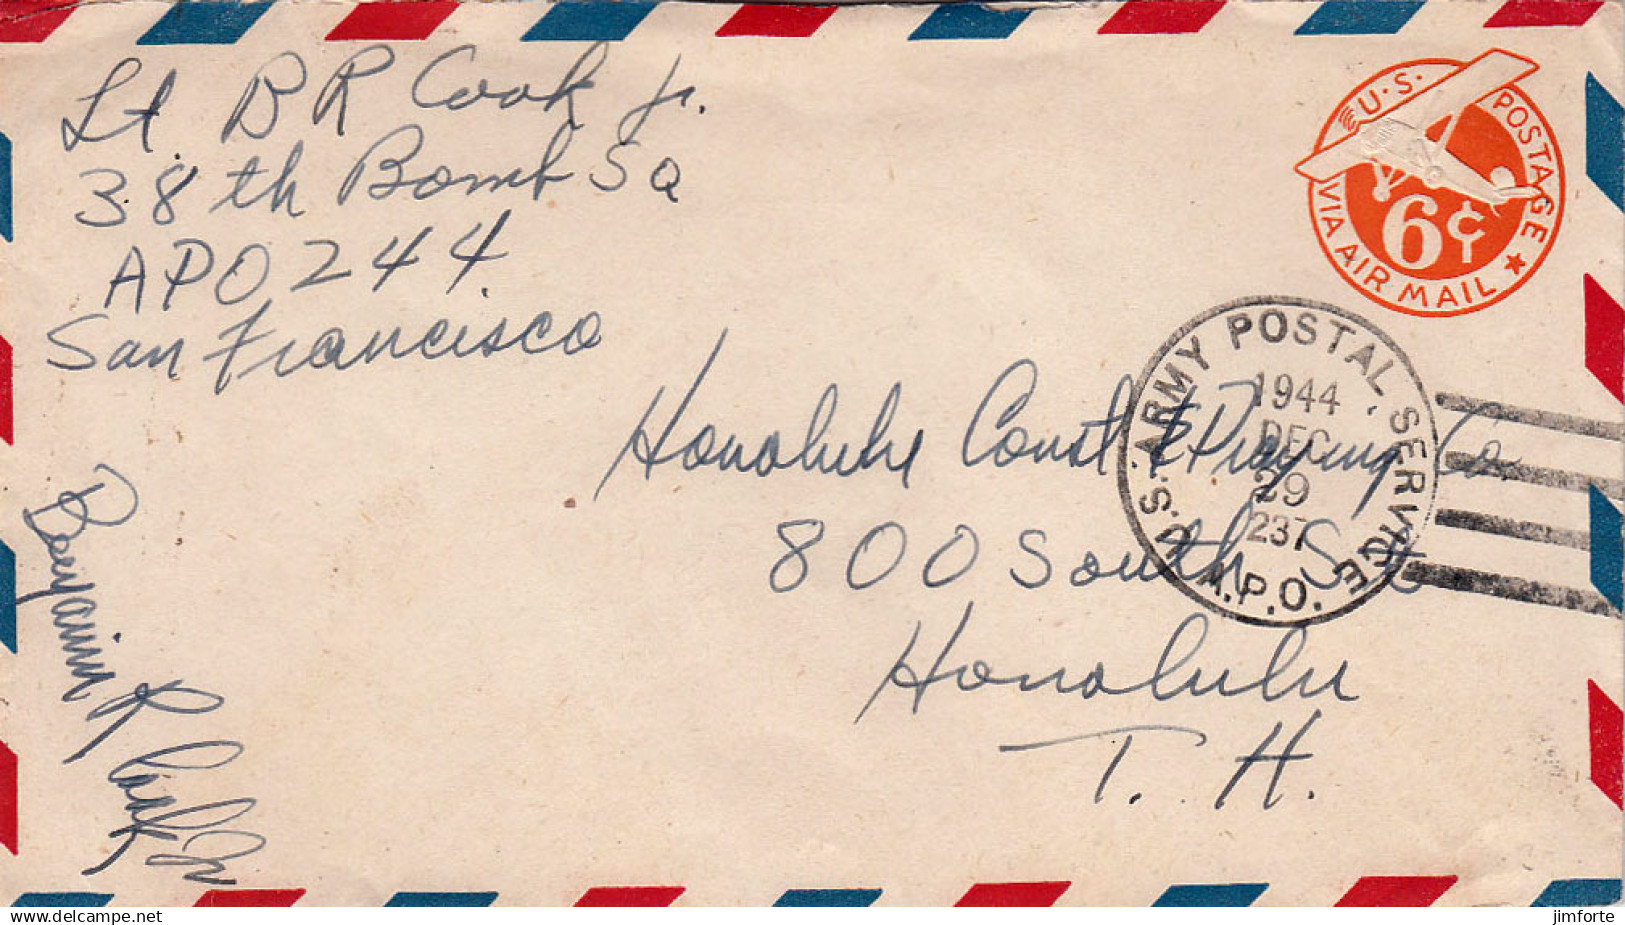 Lt. B R Cook Jr.
38th Bomb Sq
APO 244
San Francisco
U.S. POSTAGE
VIA AIR MAIL
6¢
U.S. ARMY POSTAL SERVICE
1944
DEC
29
237
A.P.O.
Honolulu Const & Draying Co.
800 South St
Honolulu
T. H.
Benjamin R Cook Jr
delcampe.net
jimforte